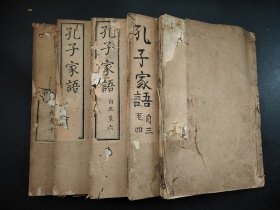 孔子家語
自三
至四
孔子家語
自五至六
孔子家語